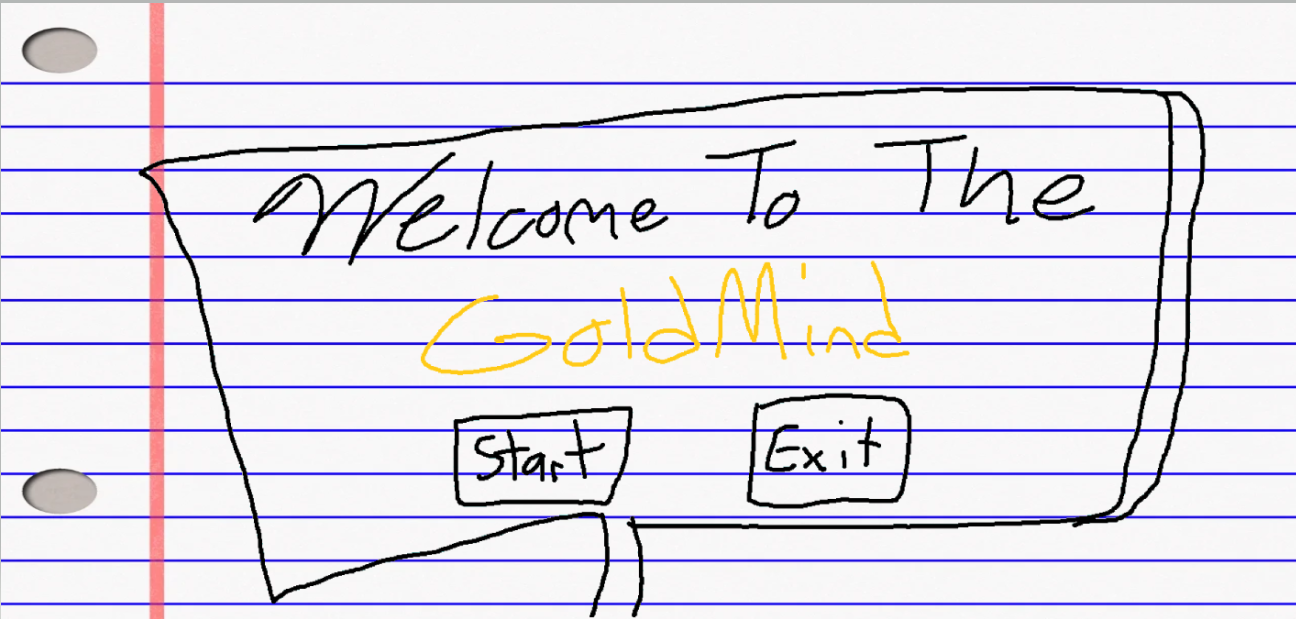 Welcome To The
GoldMind
Start
Exit